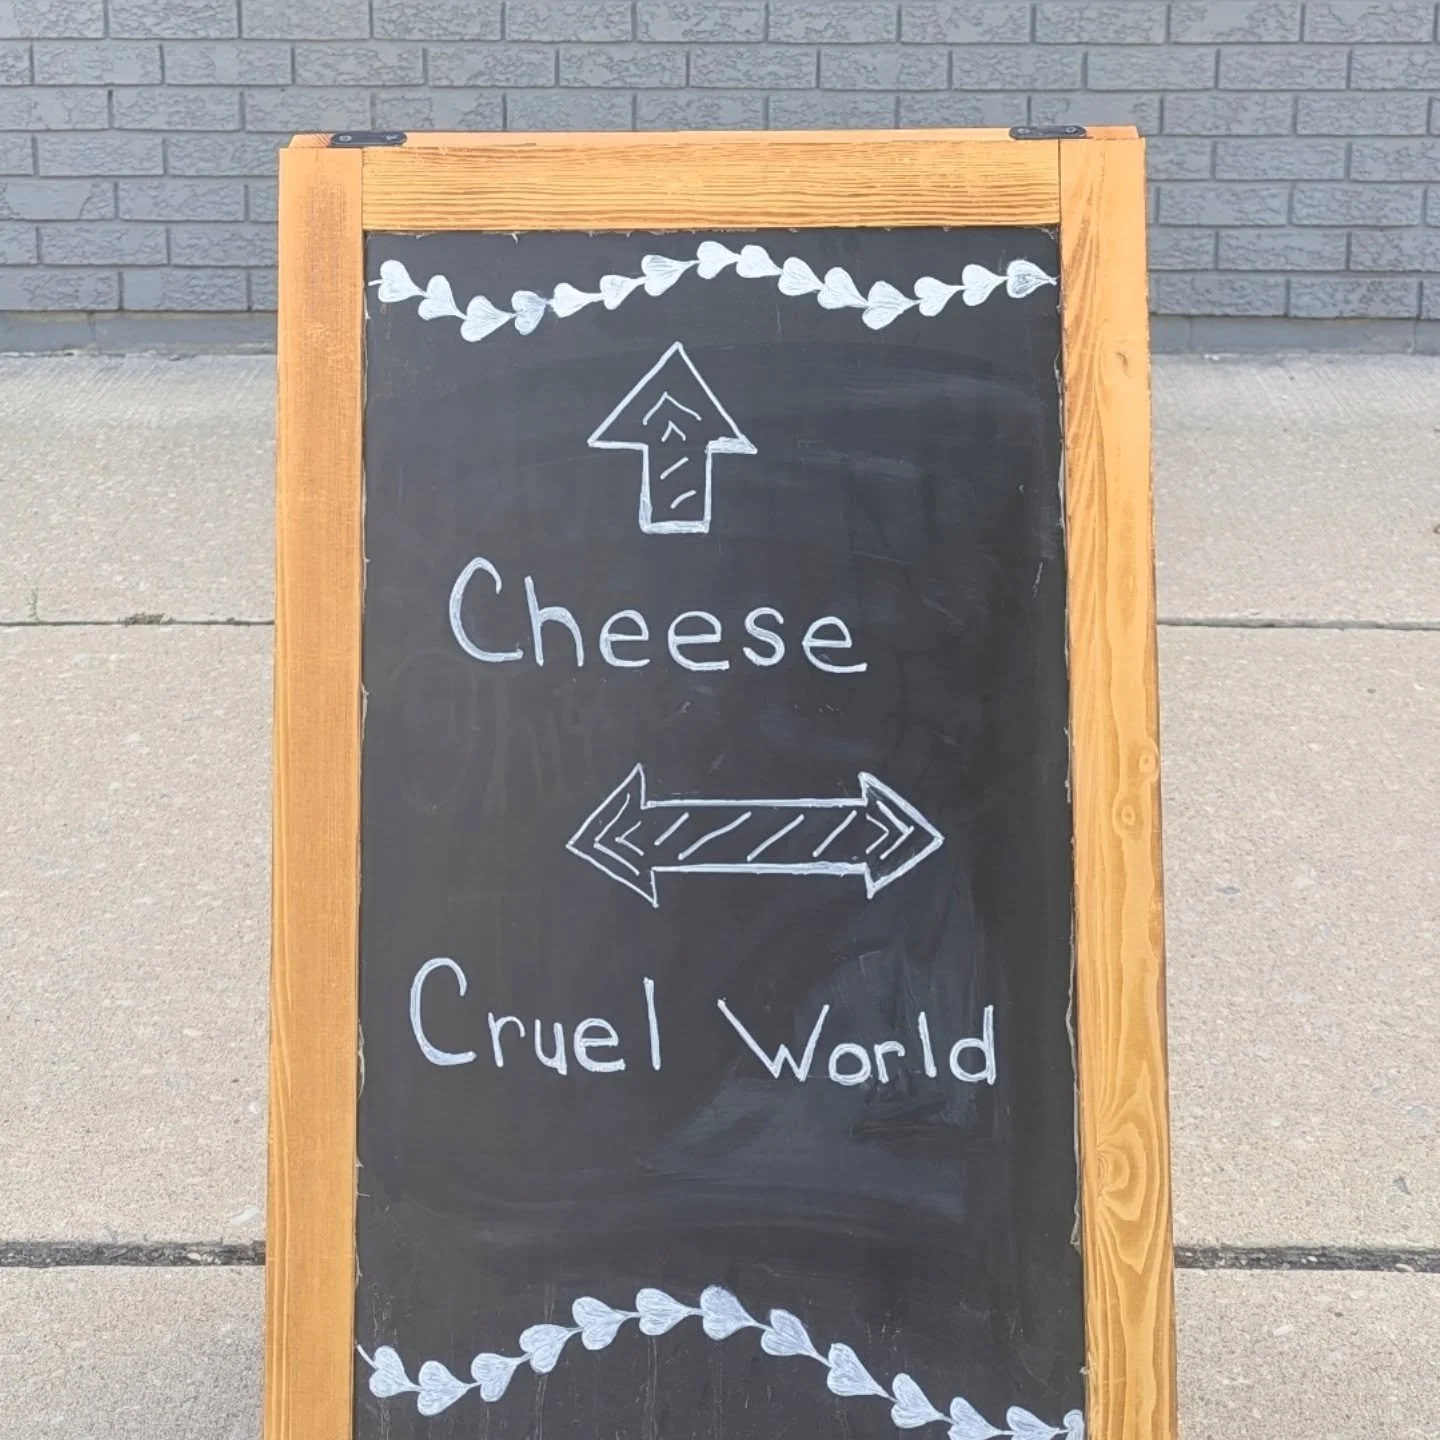 Cheese
Cruel World